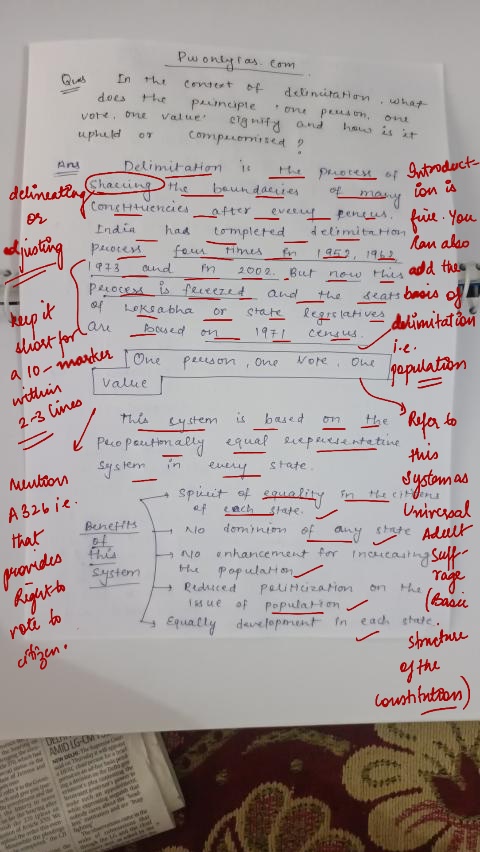 Pwonlyias.com
Ques In the context of delimitation, what
does the principle 'one person, one
vote, one value' signify and how is it
upheld or compromised?
Ans Delimitation is the process of
Sharing the boundaries of many
Constituencies after every census.
India had completed delimitation
process four times in 1952, 1962
1973 and in 2002. But now this
process is freezed and the seats
of Loksabha or state legislatives
are based on 1971 census.
One person, one Vote, One
Value
This system is based on the
propoutionally equal representative
system in every state.
Benefits
of
this
system
→ Spirit of equality in the citizens
of each state.
→ No dominion of any state
→ No enhancement for increasing
the population
→ Reduced politicization on the
issue of population
→ Equally development in each state.
delineating
or
adjusting
keep it
short for
a 10-marker
within
2-3 lines
Mention
A 326 i.e.
that
provides
Right to
vote to
citizen.
Introduct-
ion is
fine. You
can also
add the
basis of
delimitation
i.e.
population
Refer to
this
System as
Universal
Adult
Suff-
rage
(Basic
structure
of the
constitution)
AMID LG-CM
NEW DELHI: The Supreme Court